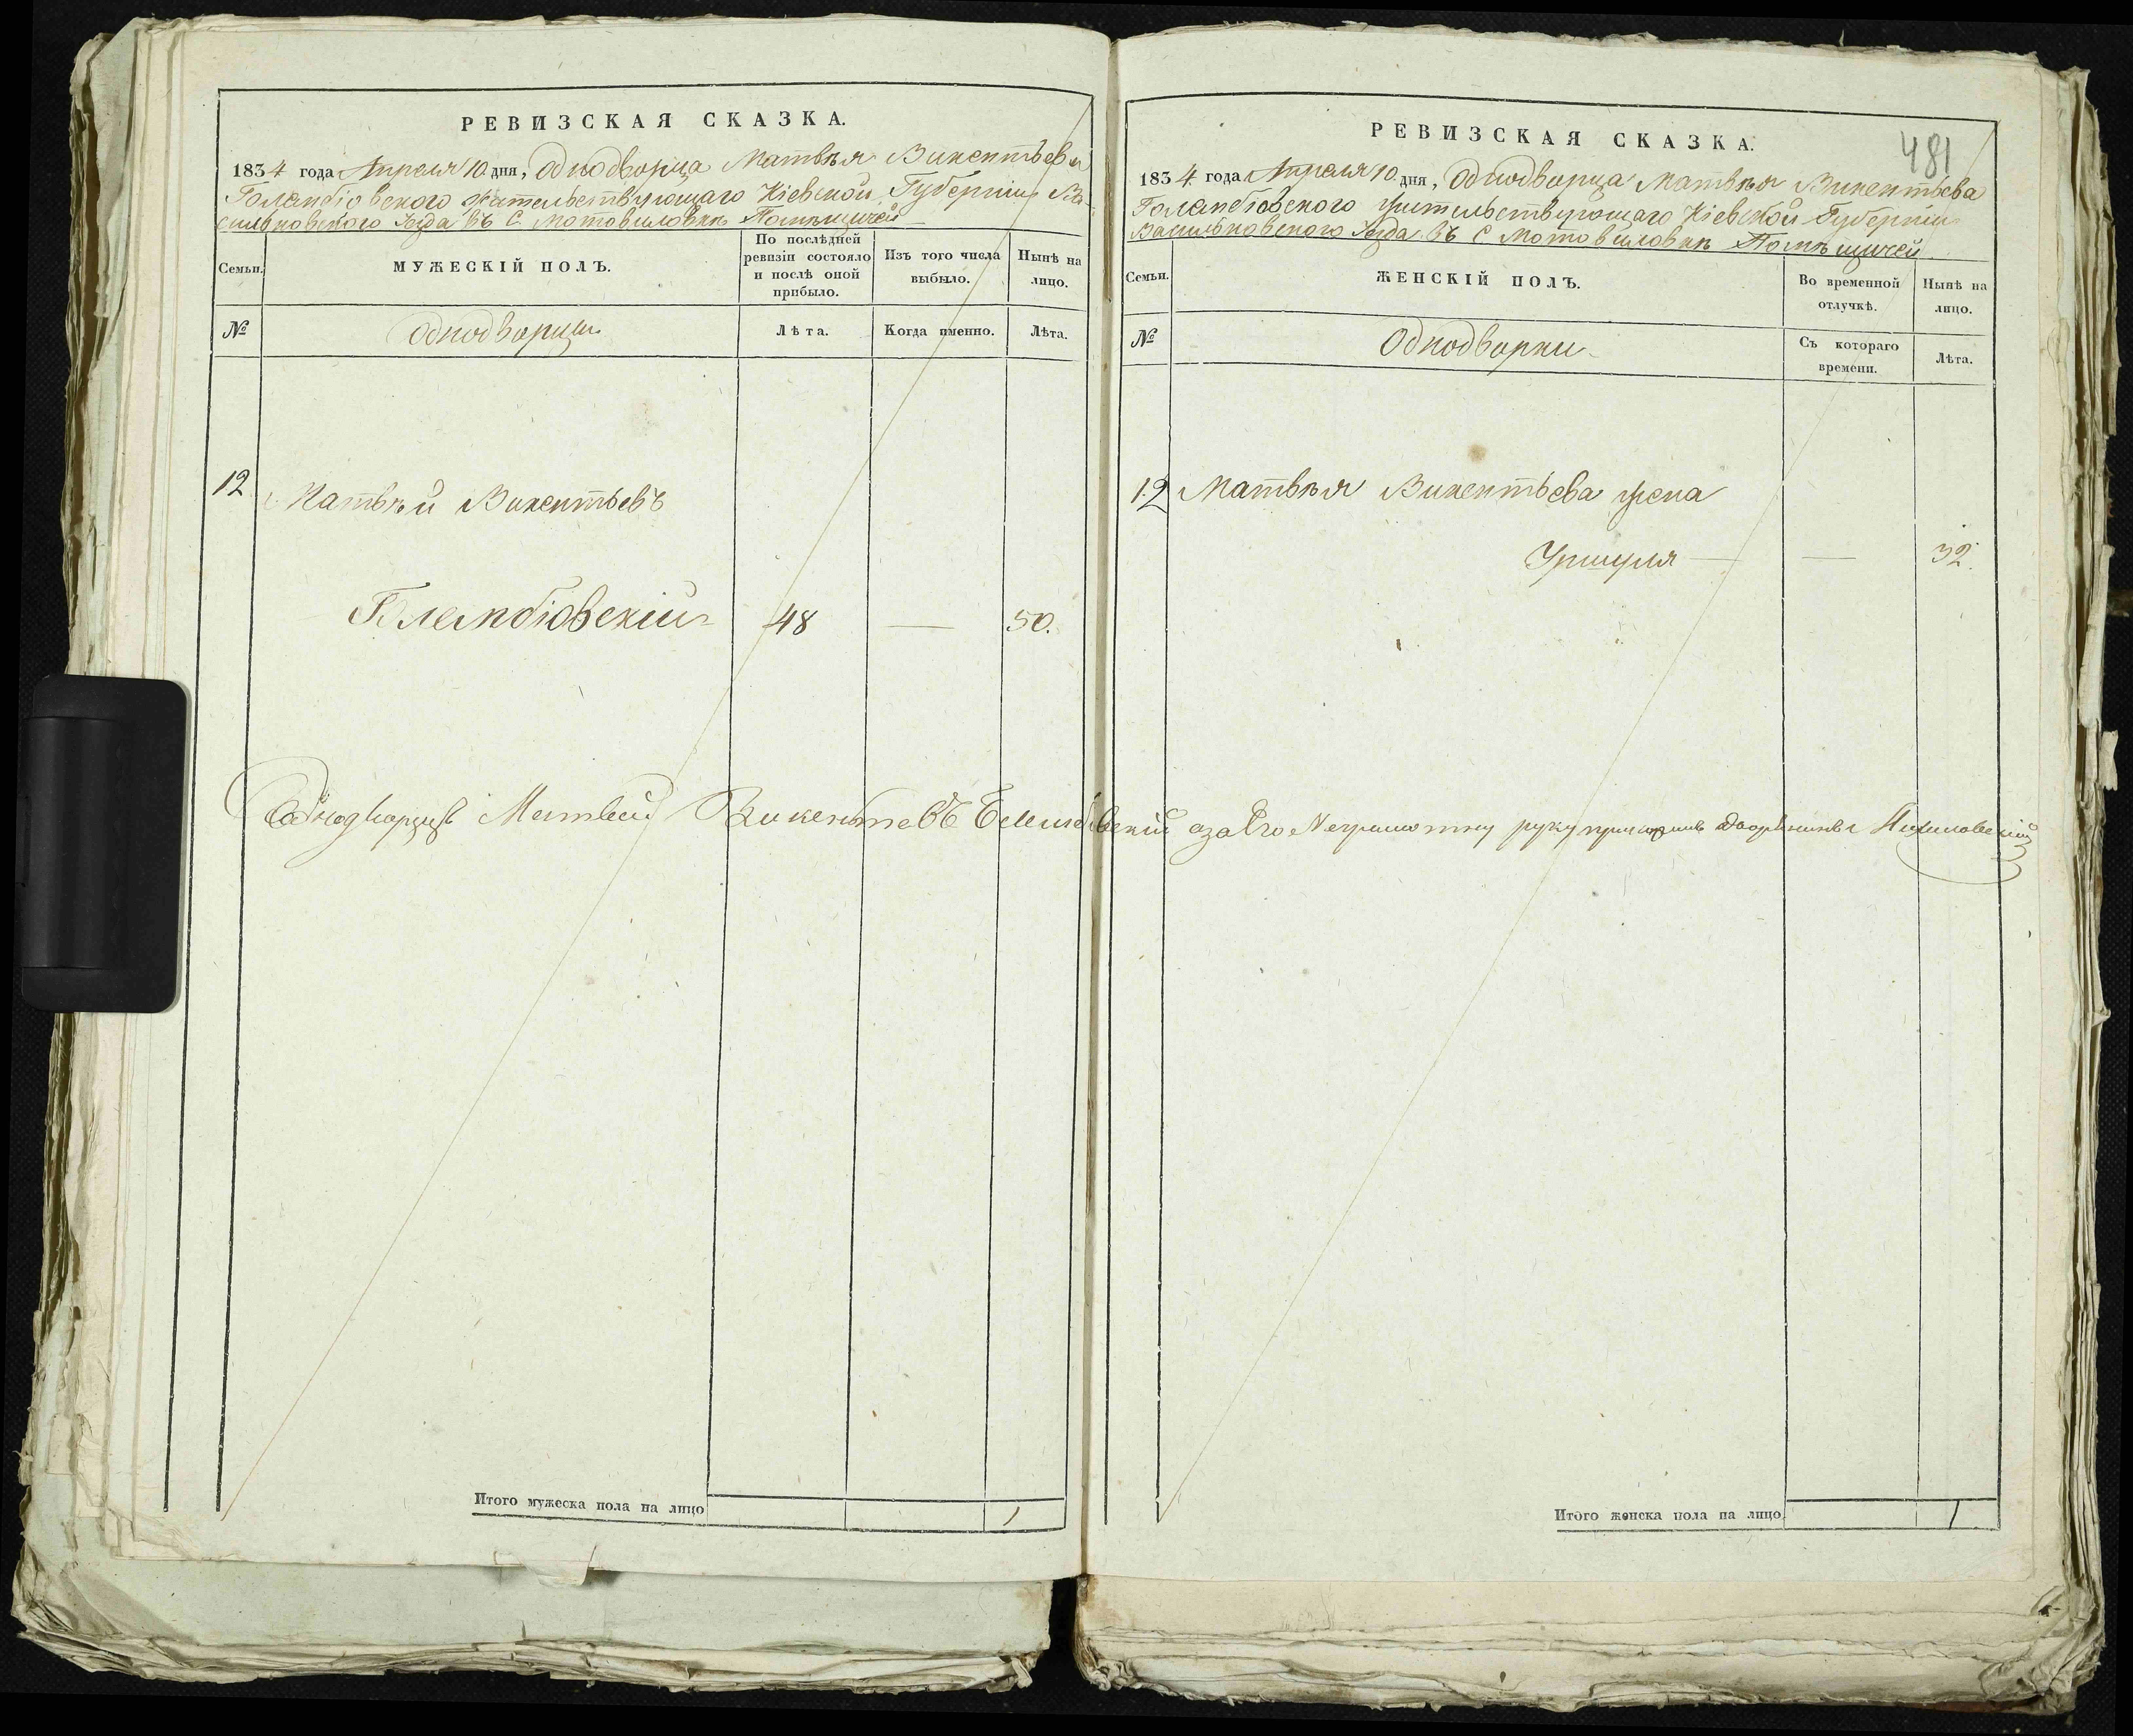 РЕВИЗСКАЯ СКАЗКА.
1834 года Апреля 10 дня, Однодворца Матвѣя Викентьева
Голембіовского Жительствующаго Кіевской Губерніи Ва-
сильковского Уезда въ С. Мотовиловкѣ Помѣщичей
Семьи.
МУЖЕСКІЙ ПОЛЪ.
По послѣдней ревизіи состояло и послѣ оной прибыло.
Изъ того числа выбыло.
Нынѣ на лицо.
№
Однодворцы
Лѣта.
Когда именно.
Лѣта.
12 Матвѣй Викентьевъ
Голембіовскій 48 — 50.
Итого мужеска пола на лицо 1
481
РЕВИЗСКАЯ СКАЗКА.
1834 года Апреля 10 дня, Однодворца Матвѣя Викентьева
Голембіовского жительствующаго Кіевской Губерніи
Васильковского Уезда въ С Мотовиловкѣ Помѣщичей
Семьи.
ЖЕНСКІЙ ПОЛЪ.
Во временной отлучкѣ.
Нынѣ на лицо.
№
Однодворки
Съ котораго времени.
Лѣта.
12 Матвѣя Викентьева жена
Уршуля — — 32.
Однодворцъ Матвей Викентевъ азаЕго Неграмотну руку приложилъ дворенинъ
Итого женска пола на лицо 1